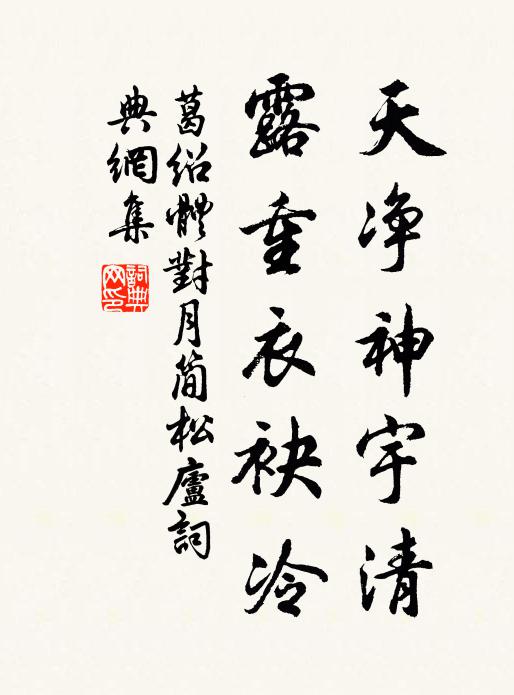 天净神宇清
露重衣袂冷
葛绍體對月简松廬詞
典網集
詞典
网印